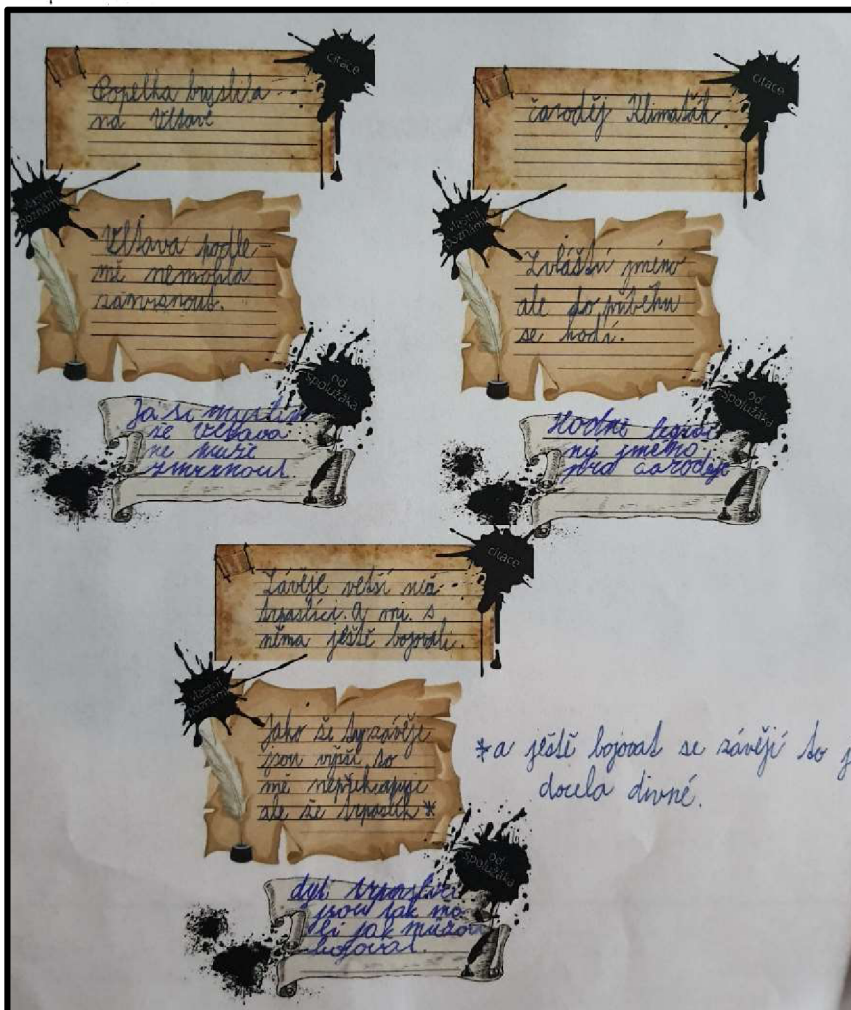 citace
Popelka bruslila
na Vltavě
vlastní
poznámka
Vltava podle
mě nemohla
zamrznout.
od
spolužáka
Ja si myslim
že Vltava
ne muže
zmrznout
citace
čaroděj Klimaťák
vlastní
poznámka
Zvláštní jméno
ale do příběhu
se hodí.
od
spolužáka
Hodně
ny jmeno
pro čaroděje
citace
Závěje vetší než
trpaslíci. A mi s
něma ještě bojovali.
vlastní
poznámka
Jako že ty závěje
jsou vyšší to
mě nepřekvapuje
ale že trpaslík *
* a ještě bojovat se závějí to j
docela divné.
od
spolužáka
dyť trpaslíci
jsou tak ma
lí jak mužou
bojovat.